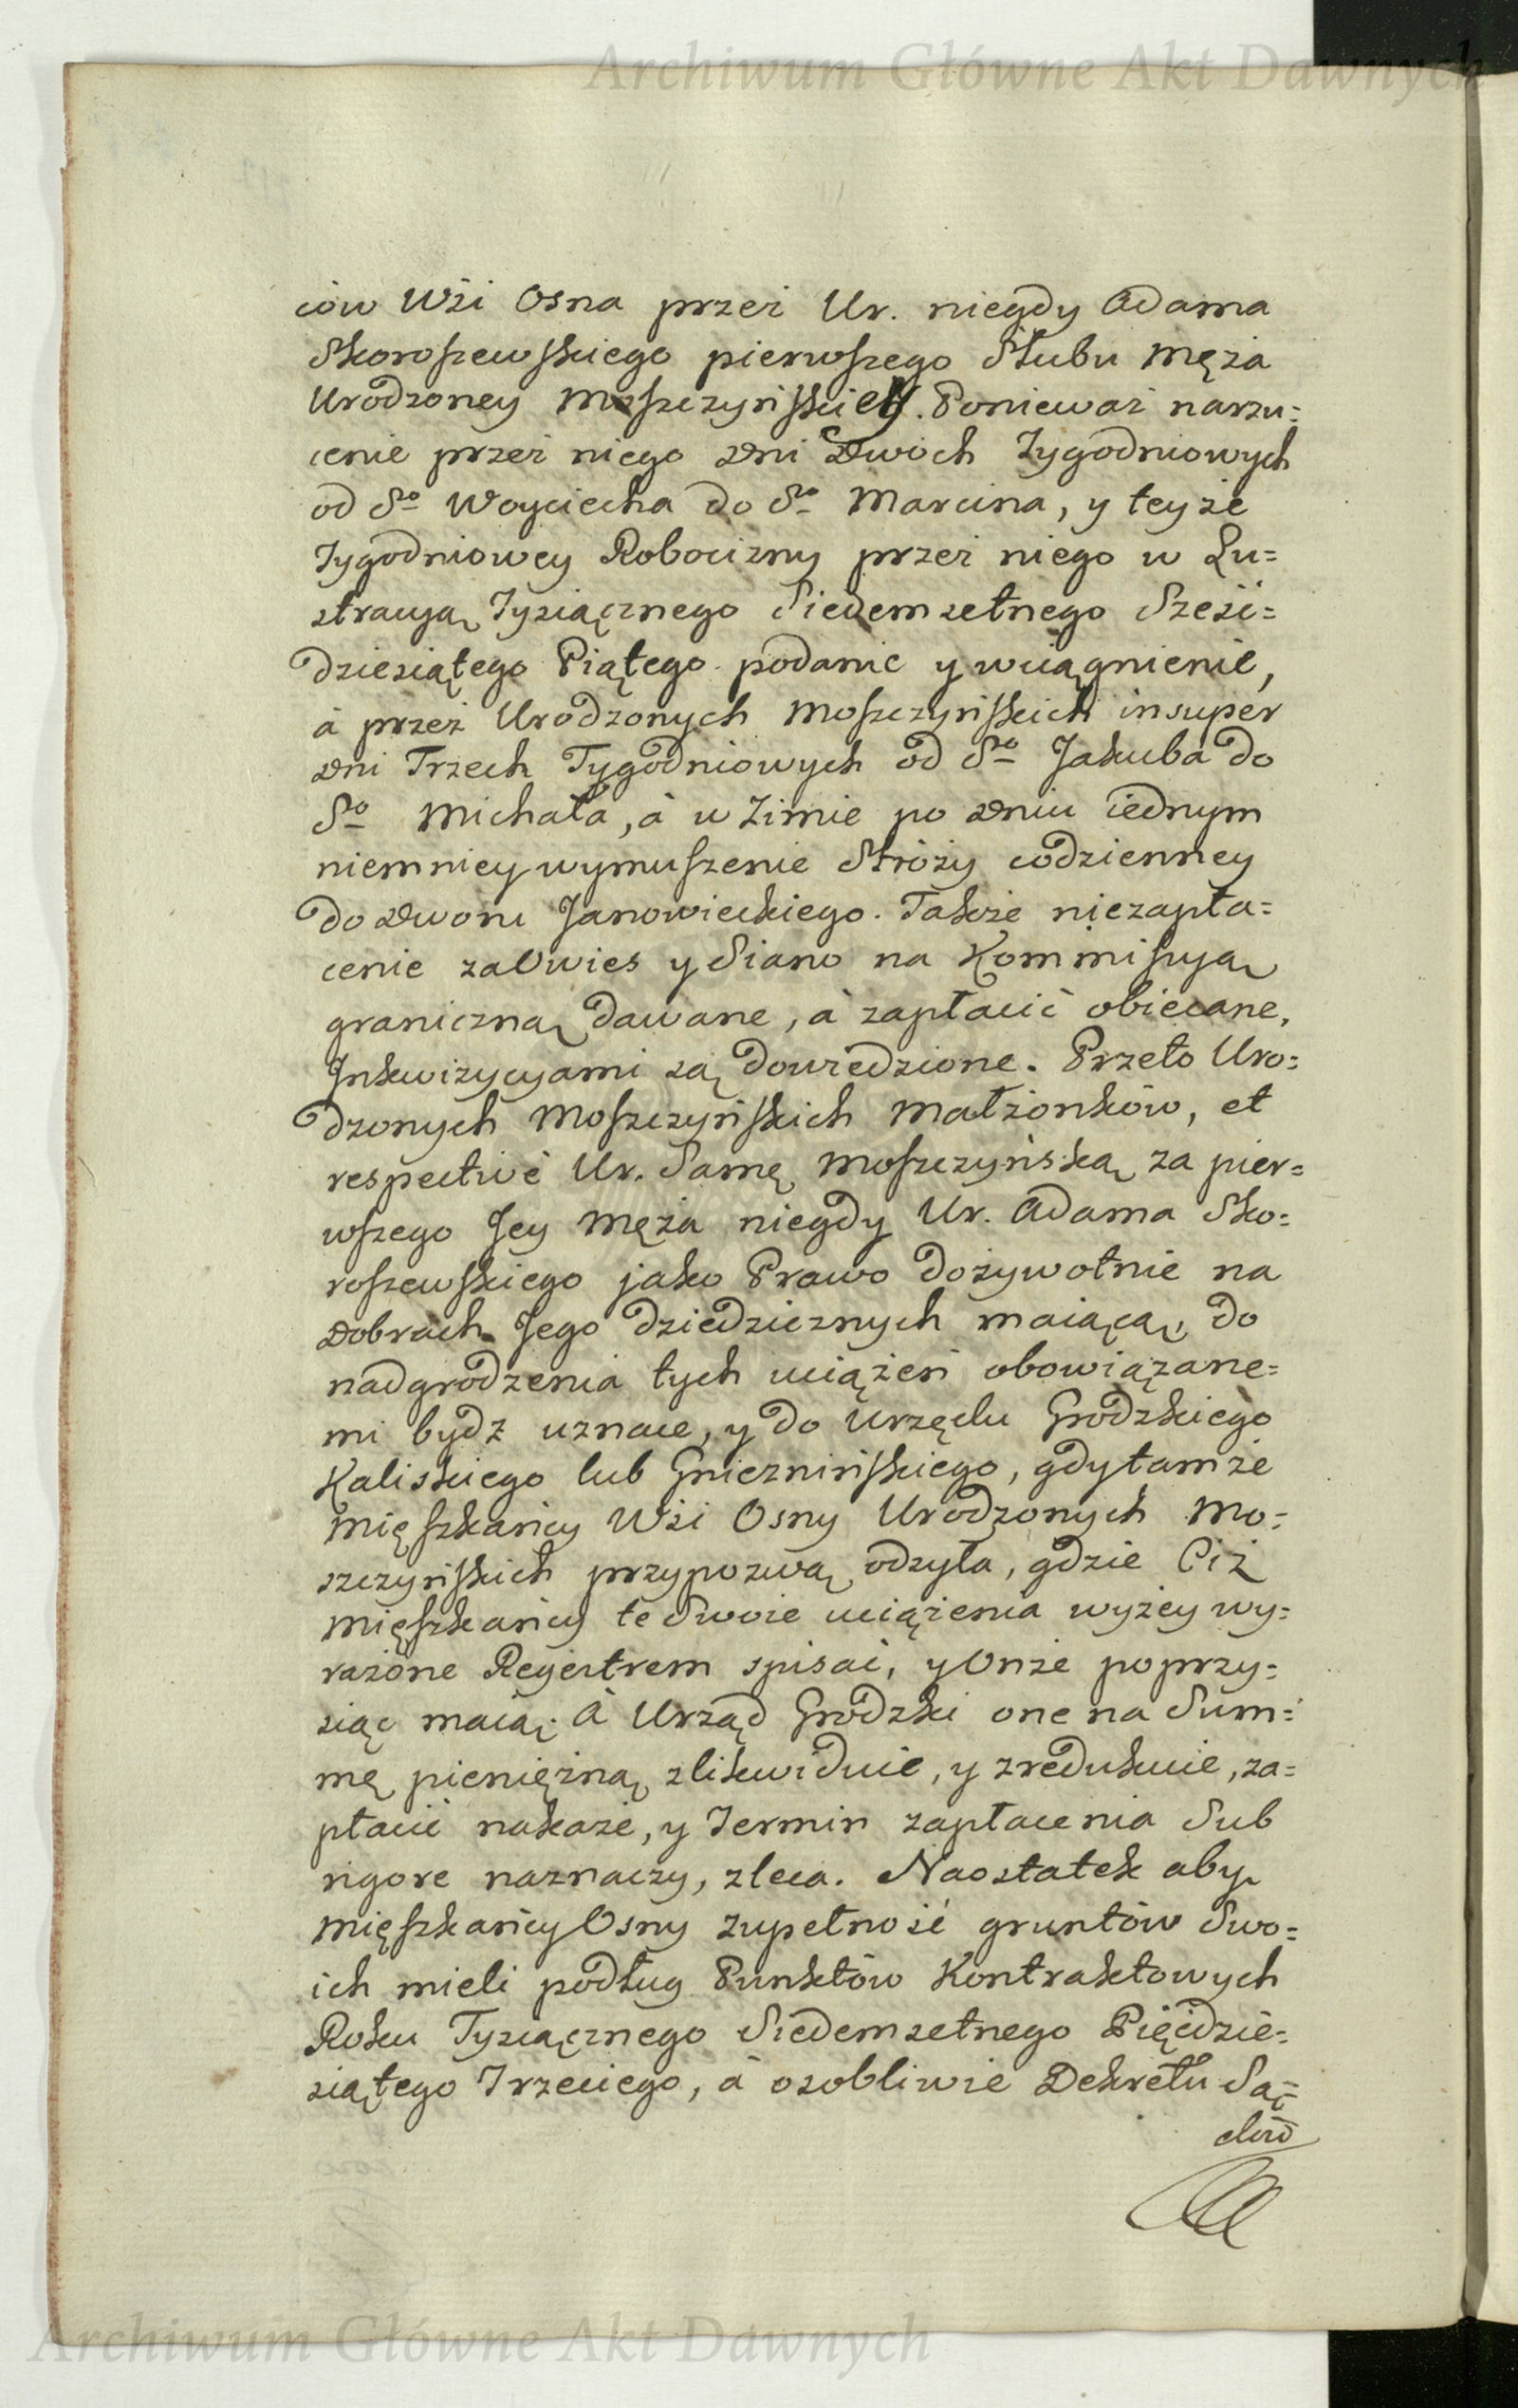 Archiwum Główne Akt Dawnych
ców Wśi Osna przez Ur. niegdy Adama
Skoroszewskiego pierwszego Ślubu Męża
Urodzoney Moszczyńskiey. Ponieważ narzu=
cenie przez niego Dni Dwóch Tygodniowych
od Sgo Woyciecha do Sgo Marcina, y teyże
Tygodniowey Robocizny przez niego w Lu=
stracyą Tysiącznego Siedemsetnego Sześć=
dziesiątego Piątego podanie y wciągnienie,
á przez Urodzonych Moszczyńskich insuper
Dni Trzech Tygodniowych od Sgo Jakuba do
Sgo Michała, á w Zimie po Dniu iednym
niemniey wymuszenie Stróży codzienney
do Dworu Janowieckiego. Także niezapła=
cenie za Owies y Siano na Kommisyą
graniczną dawane, á zapłacić obiecane,
Inkwizycyami są dowiedzione. Przeto Uro=
dzonych Moszczyńskich Małżonków, et
respectivé Ur. Samę Moszczyńską za pier=
wszego Jey Męża niegdy Ur. Adama Sko=
roszewskiego jako Prawo dożywotnie na
Dobrach Jego dziedzicznych maiącą, do
nadgrodzenia tych uciążeń obowiązane=
mi bydz uznaie, y do Urzędu Grodzkiego
Kaliskiego lub Gnieznińskiego, gdy tamże
Mięszkańcy Wśi Osny Urodzonych Mo=
szczyńskich przypozwą odsyła, gdzie Ciż
Mięszkańcy te Swoie uciążenia wyżey wy=
rażone Regestrem spisać, y Onże poprzy=
siąc maią. A Urząd Grodzki one na Sum=
mę pieniężną zlikwiduie, y zredukuie, za=
płacić nakaże, y Termin zapłacenia Sub
rigore naznaczy, zleca. Naostatek aby
Mięszkańcy Osny zupełność gruntów Swo=
ich mieli podług Punktów Kontraktowych
Roku Tysiącznego Siedemsetnego Pięćdzie=
siątego Trzeciego, á osobliwie Dekretu Są=
dów
Archiwum Główne Akt Dawnych